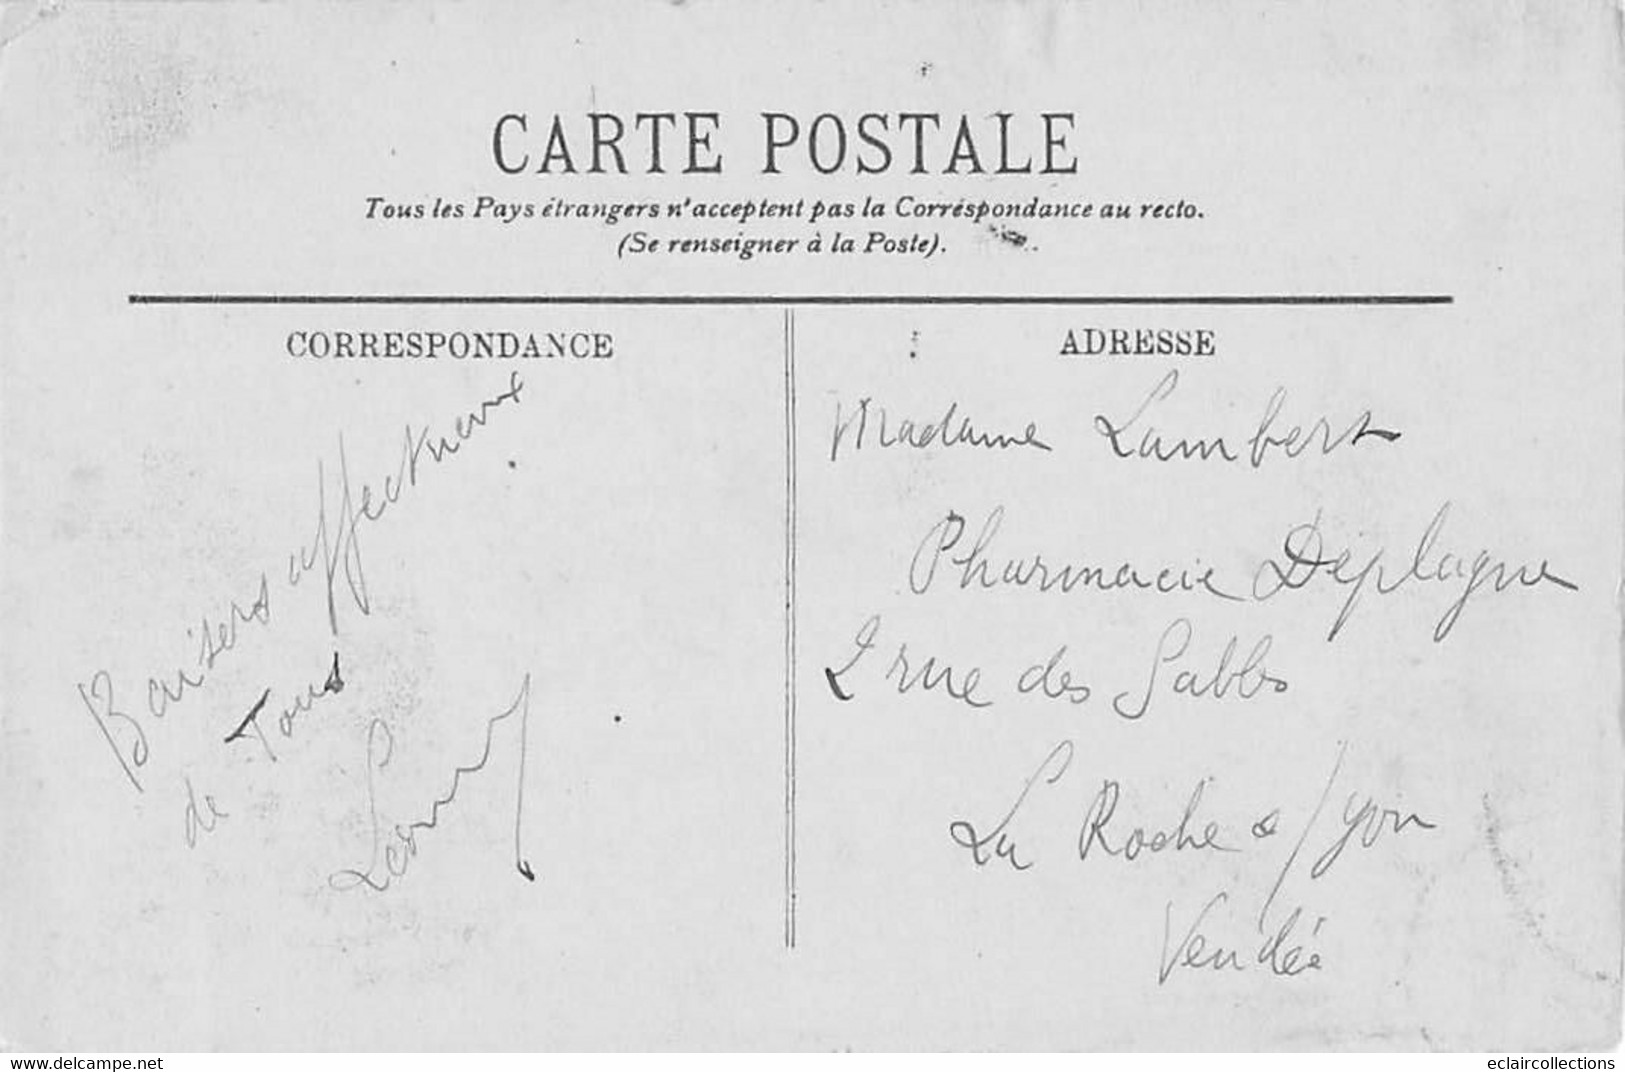 CARTE POSTALE
Tous les Pays étrangers n'acceptent pas la Correspondance au recto.
(Se renseigner à la Poste).
CORRESPONDANCE
Baisers affectueux
de Tous
ADRESSE
Madame Lambert
Pharmacie Deplagne
2 rue des Sables
La Roche s/yon
Vendée
www.delcampe.net
eclaircollections